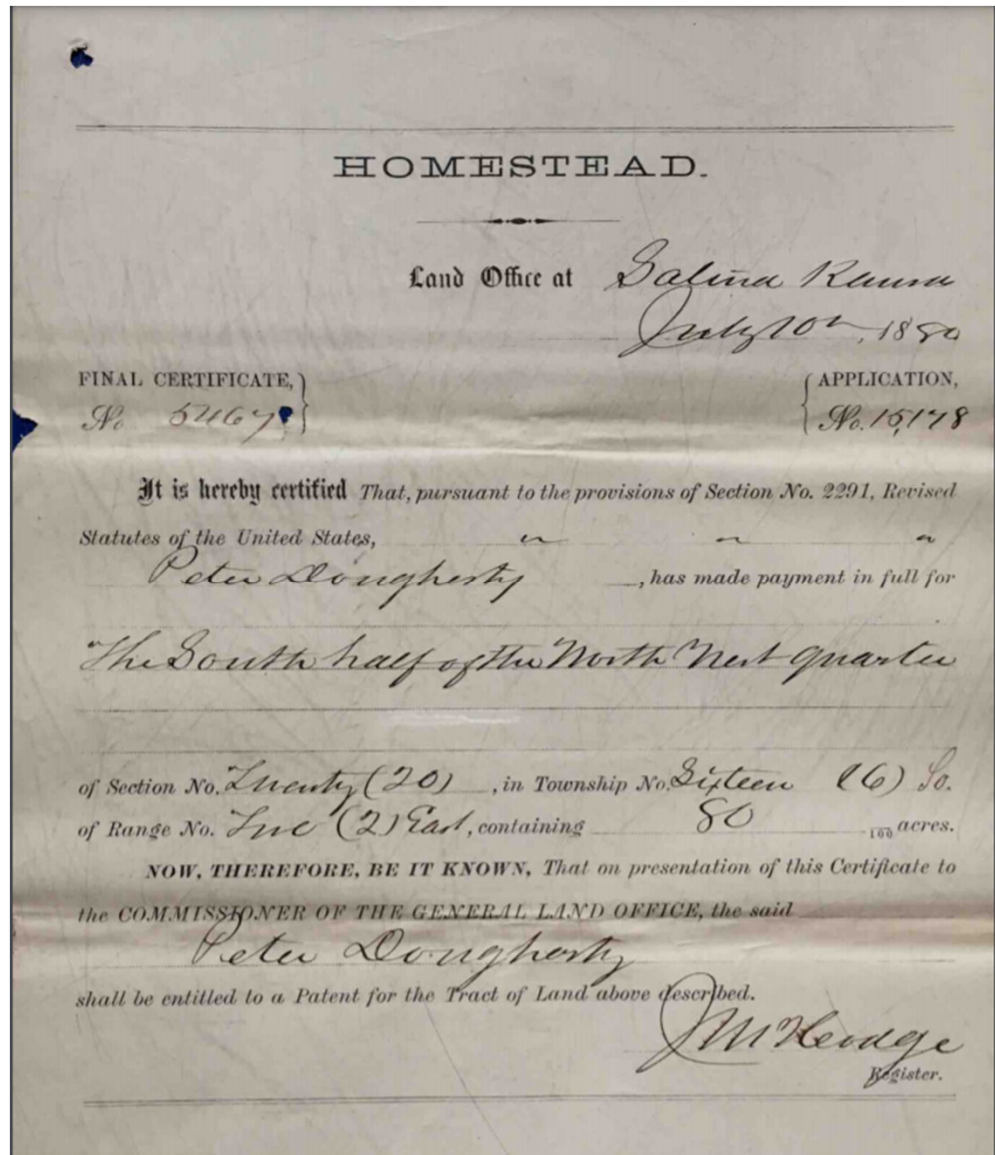 HOMESTEAD.
Land Office at Salina Kansa
July 10th, 1880
FINAL CERTIFICATE, } { APPLICATION,
No 5467 } { No. 15,178
It is hereby certified That, pursuant to the provisions of Section No. 2291, Revised
Statutes of the United States, " " "
Peter Dougherty, has made payment in full for
The South half of the North West quarter
of Section No. Twenty (20), in Township No. Sixteen (16) So.
of Range No. Two (2) East, containing 80 /100 acres.
NOW, THEREFORE, BE IT KNOWN, That on presentation of this Certificate to
the COMMISSIONER OF THE GENERAL LAND OFFICE, the said
Peter Dougherty
shall be entitled to a Patent for the Tract of Land above described.
J M Hodge
Register.